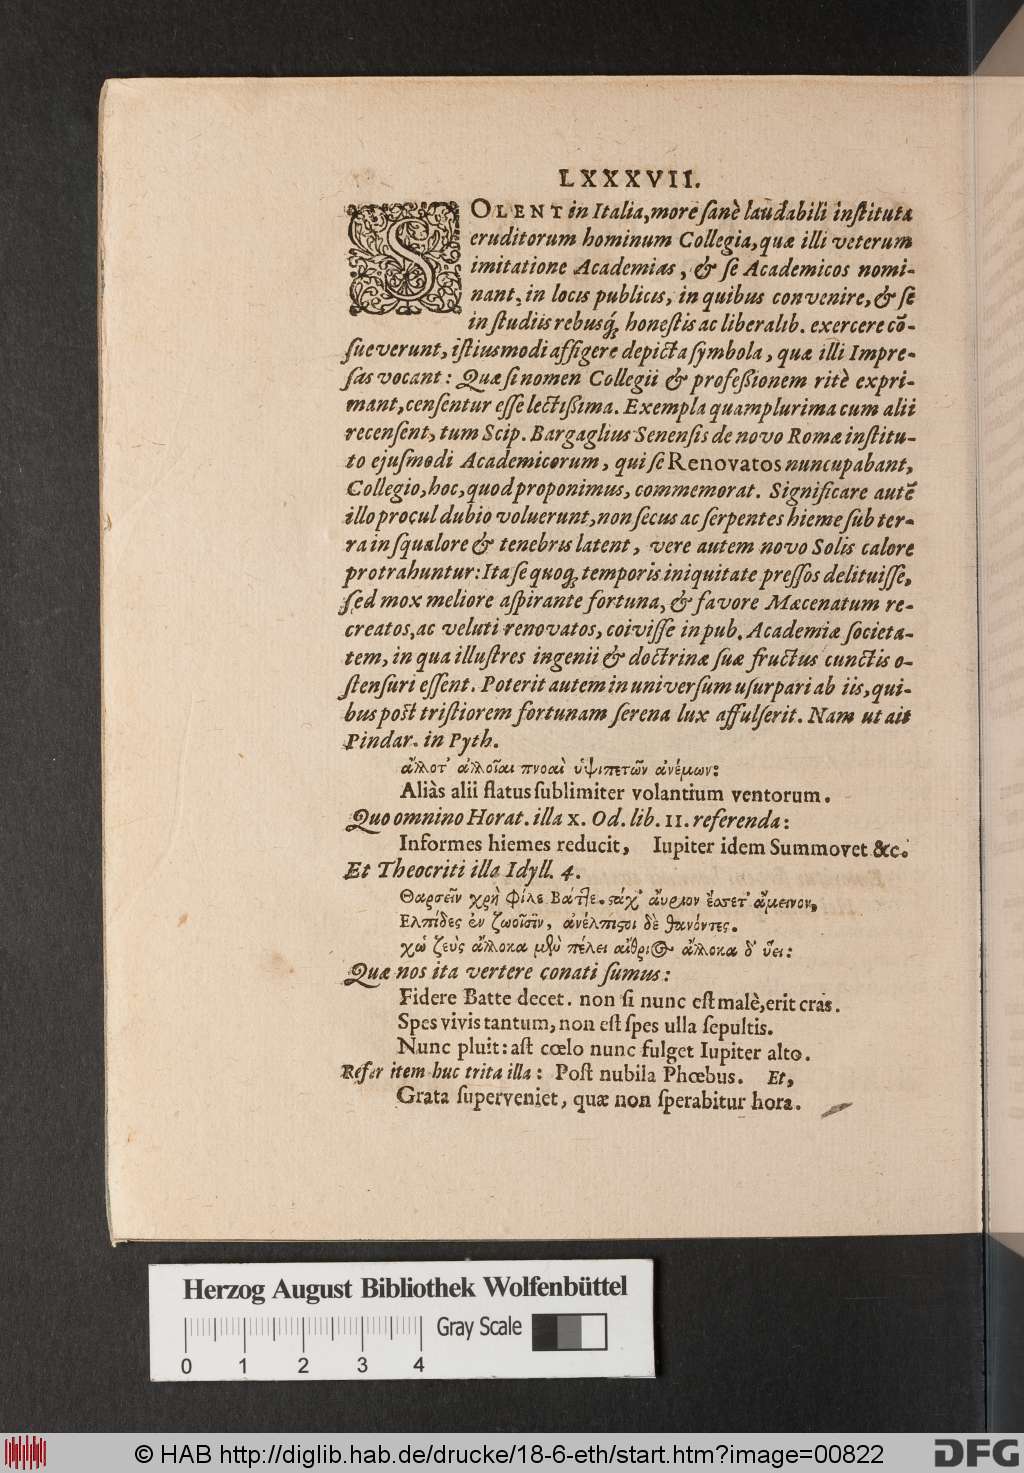 LXXXVII.
SOLENT in Italia, more ſanè laudabili inſtituta
eruditorum hominum Collegia, quæ illi veterum
imitatione Academias, & ſe Academicos nomi-
nant, in locis publicis, in quibus convenire, & ſe
in ſtudiis rebusq́; honeſtis ac liberalib. exercere cō-
ſueverunt, iſtiusmodi affigere depicta ſymbola, quæ illi Impre-
ſas vocant: Quæ ſi nomen Collegii & profeßionem ritè expri-
mant, cenſentur eſſe lectißima. Exempla quamplurima cum alii
recenſent, tum Scip. Bargaglius Senenſis de novo Romæ inſtitu-
to ejuſmodi Academicorum, qui ſe Renovatos nuncupabant,
Collegio, hoc, quod proponimus, commemorat. Significare autē
illo procul dubio voluerunt, non ſecus ac ſerpentes hieme ſub ter-
ra in ſqualore & tenebris latent, vere autem novo Solis calore
protrahuntur: Ita ſe quoq; temporis iniquitate preſſos delituiſſe,
ſed mox meliore aſpirante fortuna, & favore Mæcenatum re-
creatos, ac veluti renovatos, coiviſſe in pub. Academiæ ſocieta-
tem, in qua illuſtres ingenii & doctrinæ ſuæ fructus cunctis o-
ſtenſuri eſſent. Poterit autem in univerſum uſurpari ab iis, qui-
bus poſt triſtiorem fortunam ſerena lux affulſerit. Nam ut ait
Pindar. in Pyth.
ἄλλοτ' ἀλλοῖαι πνοαὶ ὑψιπετῶν ἀνέμων:
Aliàs alii flatus ſublimiter volantium ventorum.
Quo omnino Horat. illa x. Od. lib. II. referenda:
Informes hiemes reducit, Iupiter idem Summovet &c.
Et Theocriti illa Idyll. 4.
Θαρσεῖν χρὴ φίλε Βάττε. τάχ' ἄυριον ἔσετ' ἄμεινον,
Ελπίδες ἐν ζωοῖσιν, ἀνέλπιστοι δὲ θανόντες.
χὡ ζεὺς ἄλλοκα μὲν πέλει αἴθριος ἄλλοκα δ' ὕει:
Quæ nos ita vertere conati ſumus:
Fidere Batte decet. non ſi nunc eſt malè, erit cras.
Spes vivis tantum, non eſt ſpes ulla ſepultis.
Nunc pluit: aſt cœlo nunc fulget Iupiter alto.
Refer item huc trita illa: Poſt nubila Phœbus. Et,
Grata ſuperveniet, quæ non ſperabitur hora.
Herzog August Bibliothek Wolfenbüttel
Gray Scale
0 1 2 3 4
© HAB http://diglib.hab.de/drucke/18-6-eth/start.htm?image=00822
DFG